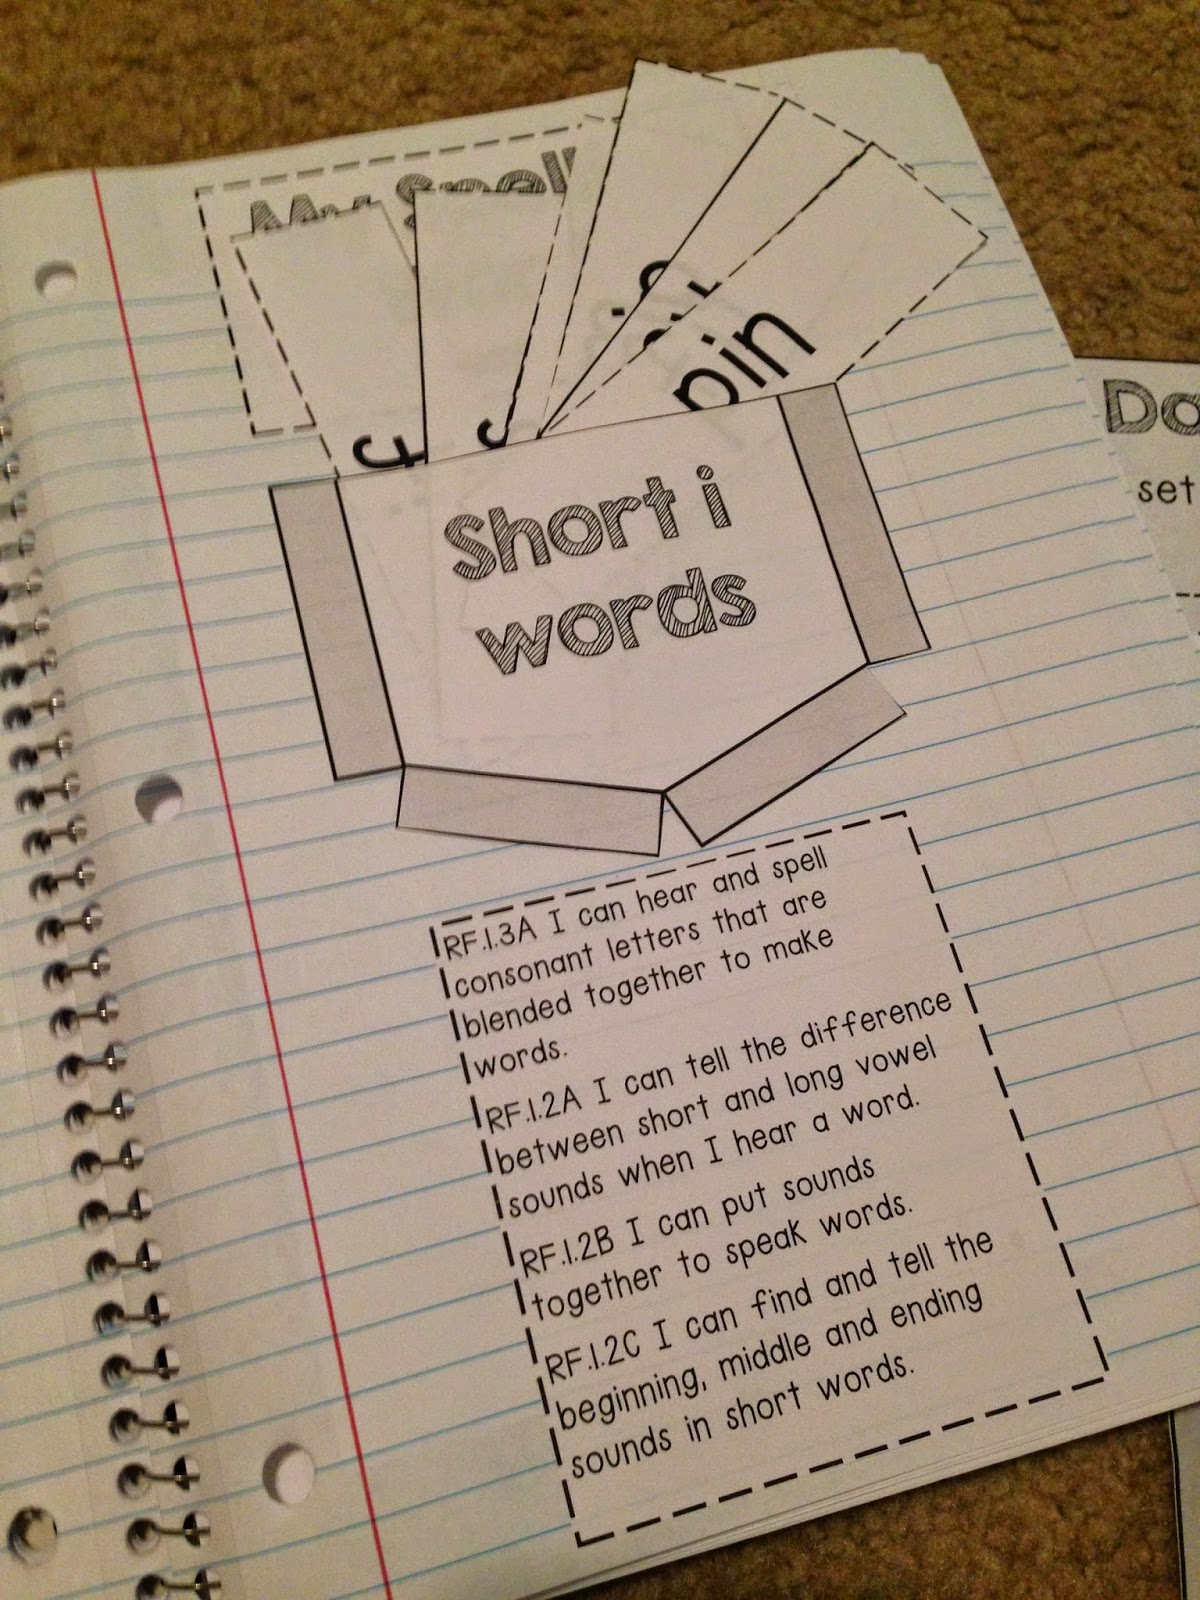 pin
Short i
words
RF.1.3A I can hear and spell
consonant letters that are
blended together to make
words.
RF.1.2A I can tell the difference
between short and long vowel
sounds when I hear a word.
RF.1.2B I can put sounds
together to speak words.
RF.1.2C I can find and tell the
beginning, middle and ending
sounds in short words.
set